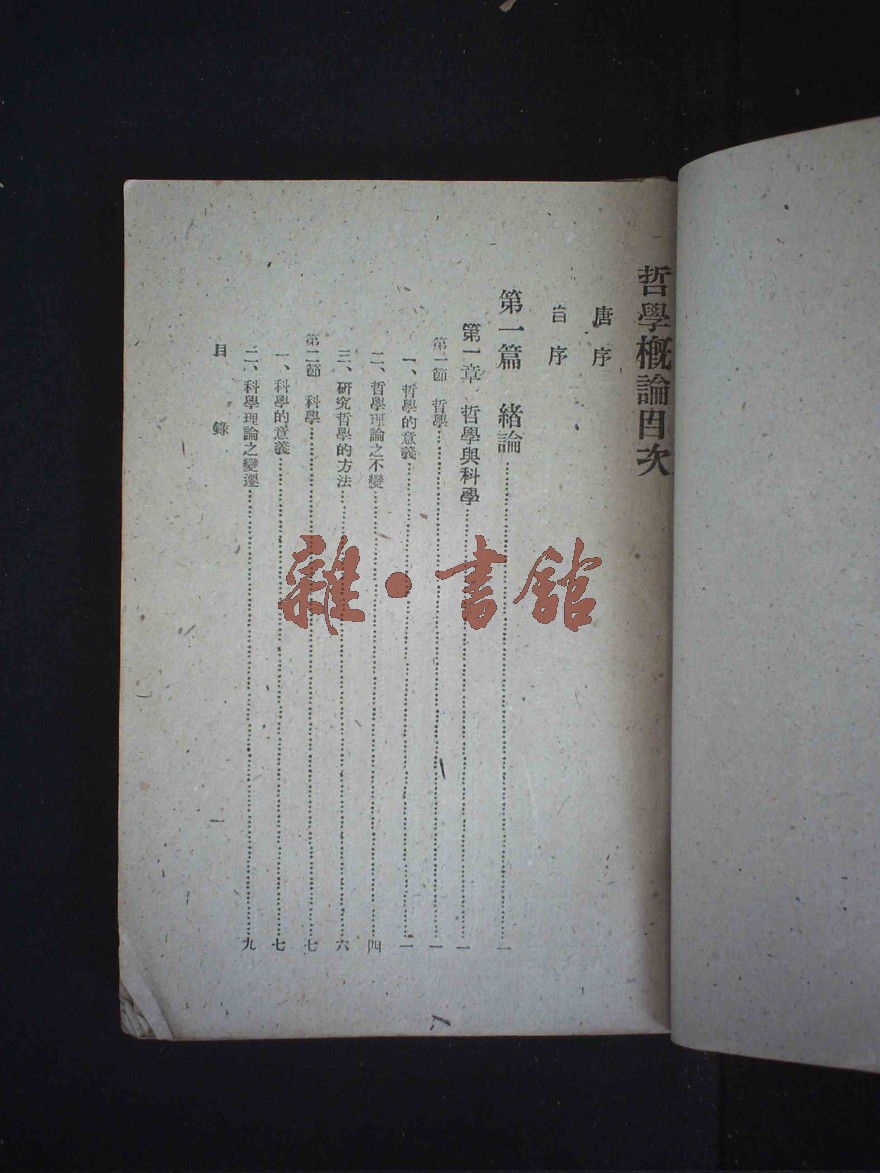 哲學概論目次
唐序
自序
第一篇 緒論……一
第一章 哲學與科學……一
第一節 哲學……一
一、哲學的意義……一
二、哲學理論之不變……四
三、研究哲學的方法……六
第二節 科學……七
一、科學的意義……七
二、科學理論之變遷……九
目錄
一
雜·書館